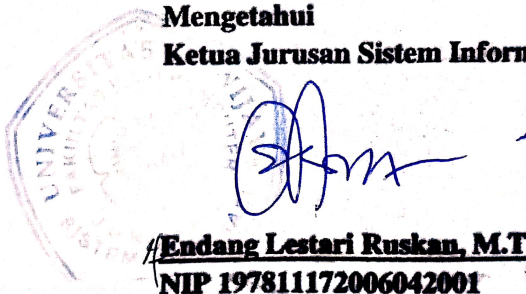 Mengetahui
Ketua Jurusan Sistem Inform
Endang Lestari Ruskan, M.T
NIP 197811172006042001
UNIVERSITAS